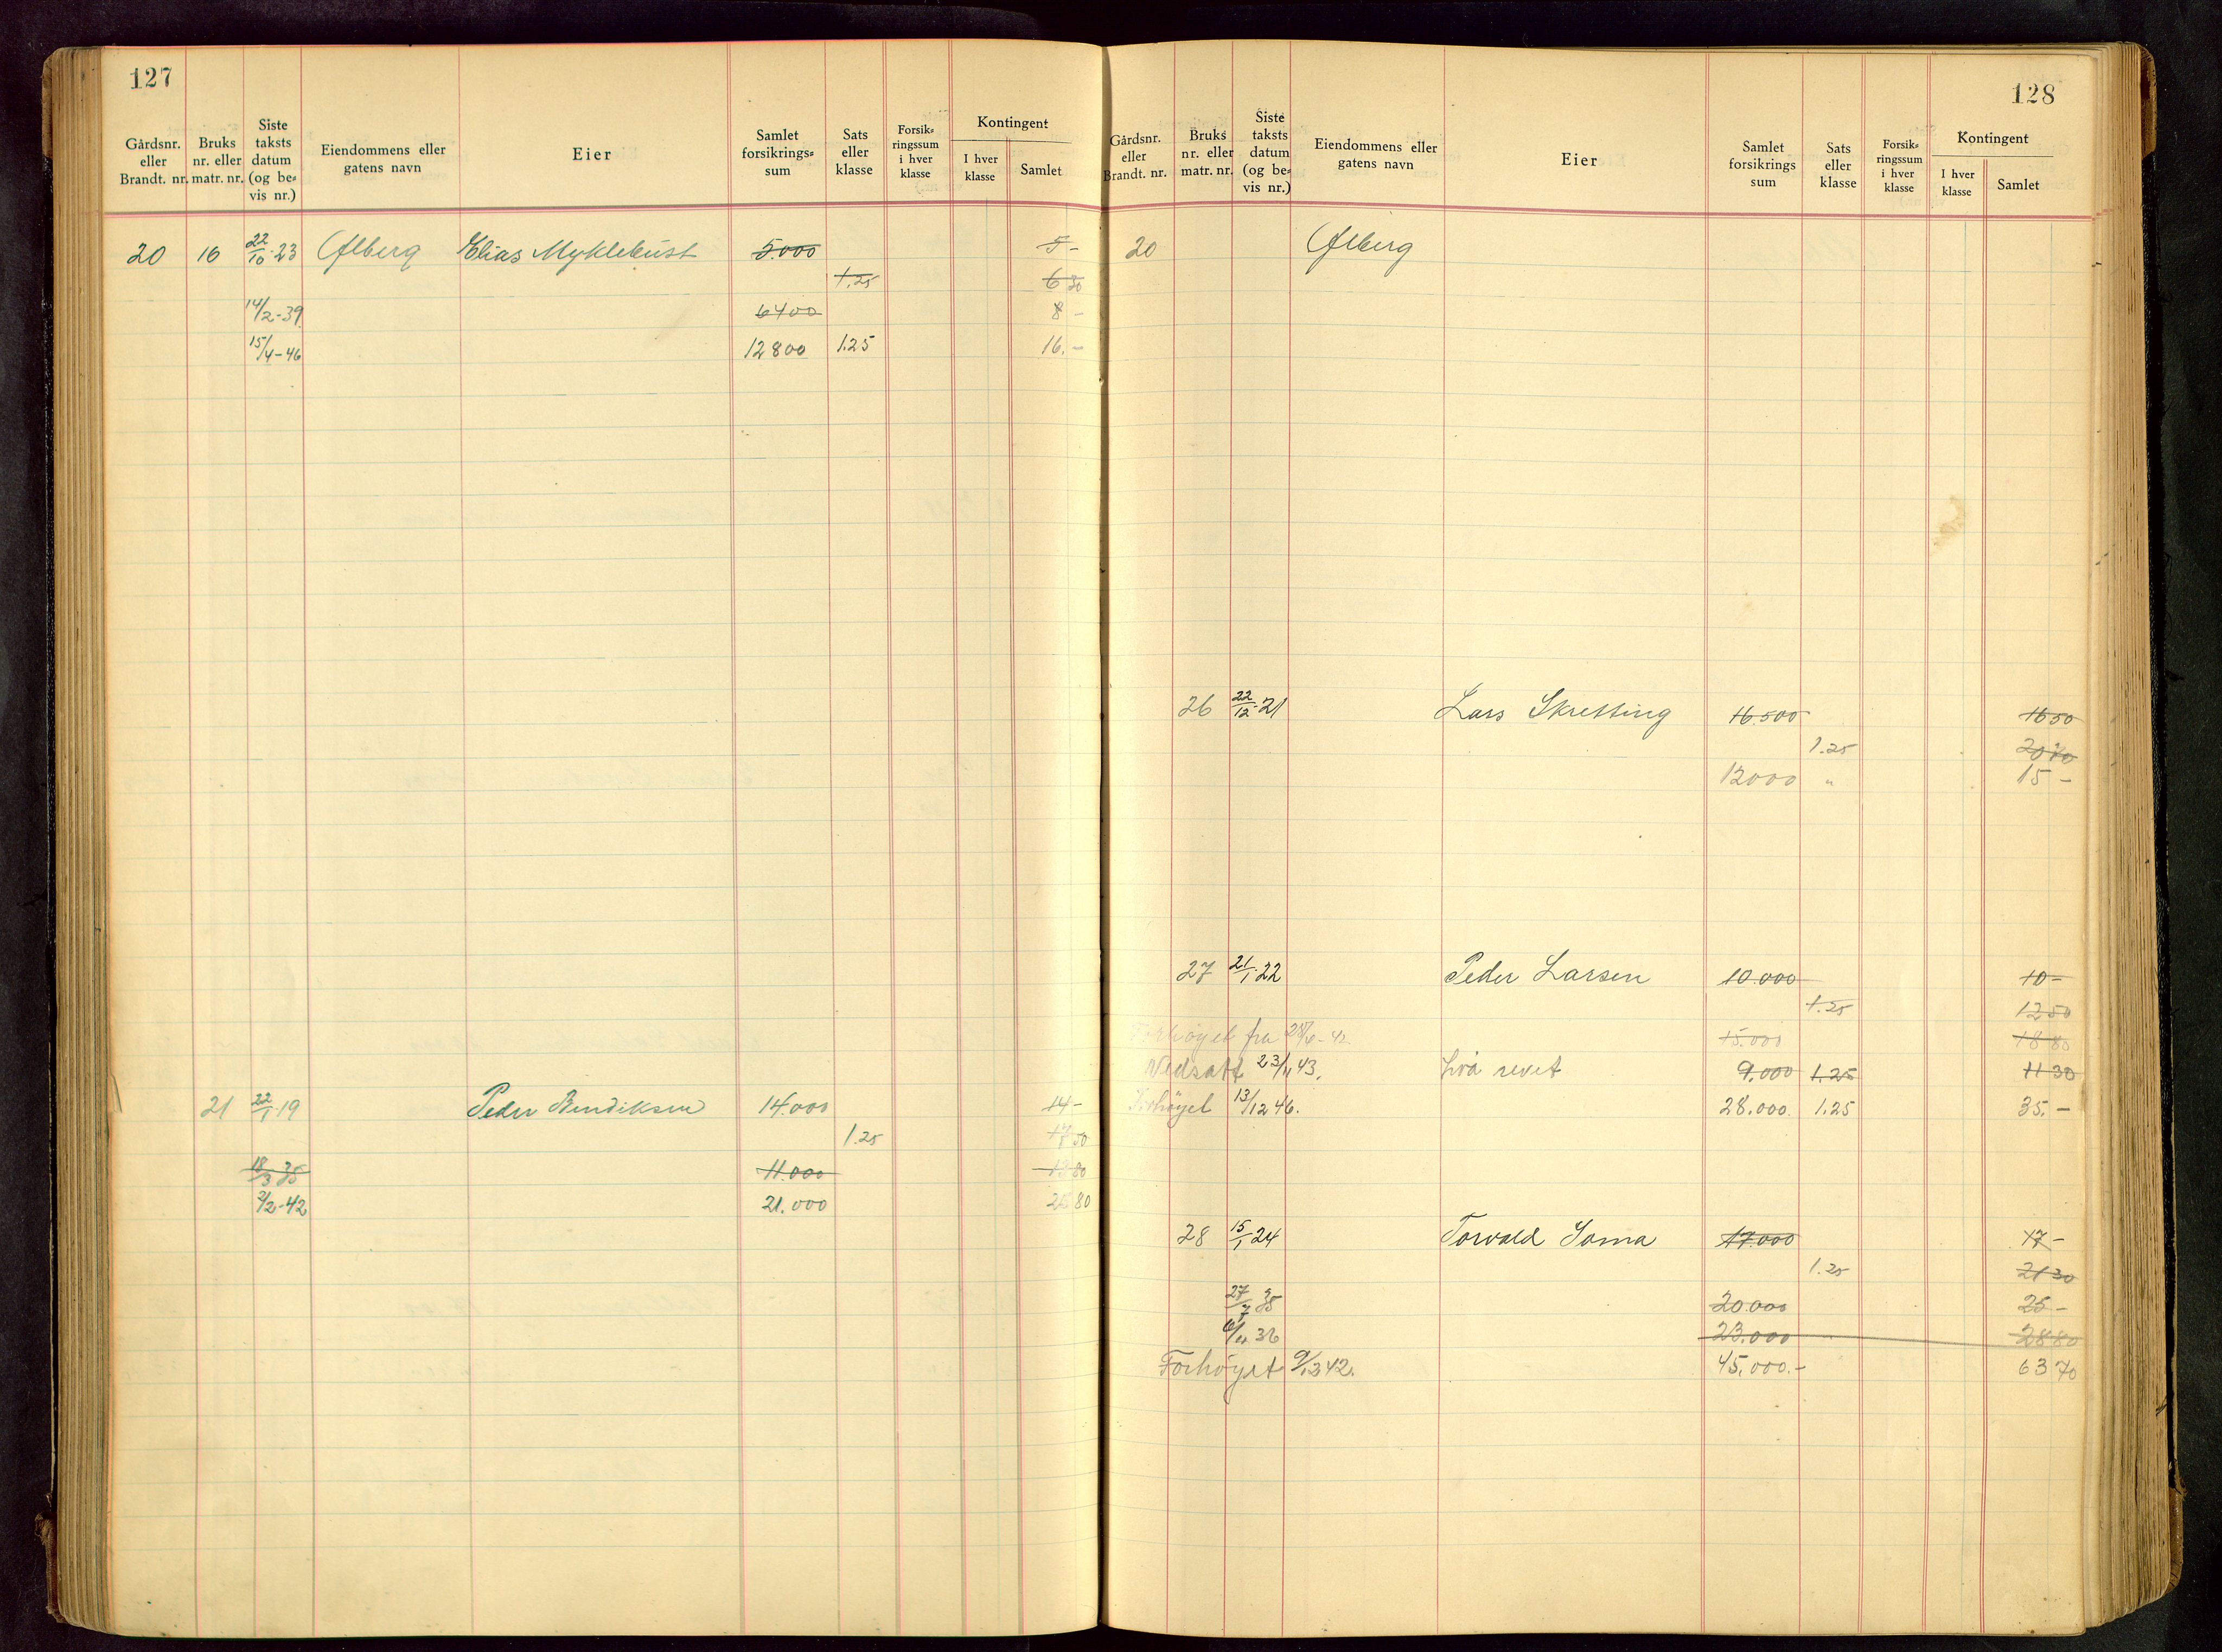 127
Gårdsnr. eller Brandt. nr. Bruks nr. eller matr. nr. Siste taksts datum (og be= vis nr.) Eiendommens eller gatens navn Eier Samlet forsikrings= sum Sats eller klasse Forsik= ringssum i hver klasse Kontingent I hver klasse Samlet
20 16 22/10-23 Ølberg Elias Myklebust 5.000 5 -
1.25 6 30
14/2-39 6400 8 -
15/4-46 12800 1.25 16.-
21 22/1-19 Peder Bendiksen 14.000 14 -
1.25 17 50
18/3 35 11.000 13 80
2/2-42 21.000 80
128
Gårdsnr. eller Brandt. nr. Bruks nr. eller matr. nr. Siste taksts datum (og be= vis nr.) Eiendommens eller gatens navn Eier Samlet forsikrings sum Sats eller klasse Forsik= ringssum i hver klasse Kontingent I hver klasse Samlet
20 Ølberg
26 22/12-21 Lars Skretting 16.500 16 50
1.25 20 70
12000 " 15 -
27 21/1-22 Peder Larsen 10.000 10 -
1.25 12 50
Forhøyet fra -42 15.000 18 80
Nedsatt 23/11 43. revet 9.000 1.25 11 30
Forhøyet 13/12 46. 28.000. 1.25 35.-
28 15/1 24 Torvald Soma 17.000 17 -
1.25 21 30
27/7 35 20.000 25 -
36 23.000 28 80
Forhøyet 42. 45.000.- 63 70